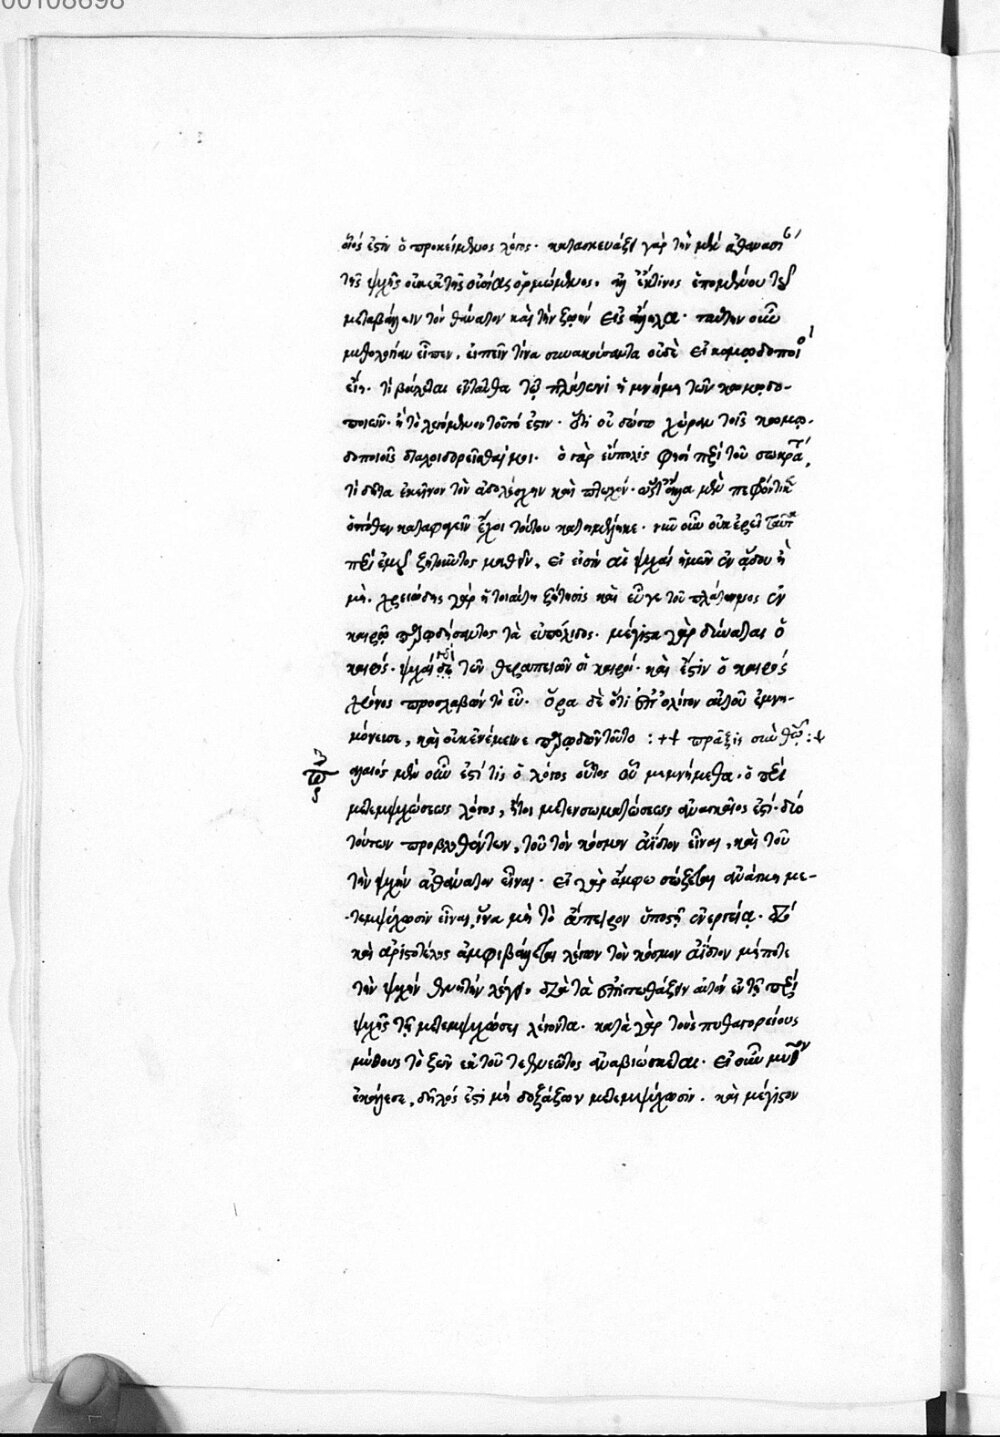 00108698
οἷός ἐστιν ὁ προκείμενος λόγος· κατασκευάζει γὰρ τὴν μὲν ἀθανασί
τῆς ψυχῆς οὐκ ἐκ τῆς οὐσίας ὁρμώμενος,
μεταβάλλειν τὸν θάνατον καὶ τὴν ζωὴν εἰς ἄλληλα· ταύτην οὖν
εἶπεν, εἰπεῖν τινα συνακούσαντα οὐδὲ εἰ κωμῳδοποιὸ
εἴη· τί βούλεται ἐνταῦθα τῷ πλάτωνι ἡ μνήμη τῶν κωμῳδο-
ποιῶν· ἢ τὸ λεγόμενον τοῦτό ἐστιν· ὅτι οὐ δώσω χώραν τοῖς κωμῳ-
δοποιοῖς διαλοιδορεῖσθαί μοι· ὁ γὰρ εὔπολίς φησι περὶ τοῦ σωκρά
τί δῆτα ἐκεῖνον τὸν ἀδολέσχην καὶ πτωχόν· ὃς τἄλλα μὲν πεφρόντικε
ὁπόθεν καταφαγεῖν ἔχοι τούτου κατημέληκε· νῦν οὖν οὐκ ἐρεῖ ταῦτ
περὶ ἐμοῦ ζητοῦντος μαθεῖν, εἰ εἰσὶν αἱ ψυχαὶ ἡμῶν ἐν ᾅδου ἢ
μή· χρειώδης γὰρ ἡ τοιαύτη ζήτησις καὶ εὖγε τοῦ πλάτωνος ἐν
καιρῷ παρῳδήσαντος τὰ εὐπόλιδος· μέγιστα γὰρ δύναται ὁ
καιρός· ψυχαὶ δὲ τῶν θεραπειῶν οἱ καιροί· καὶ ἔστιν ὁ καιρὸς
χρόνος προσλαβὼν τὸ εὖ· ὅρα δὲ ὅτι ἐπ' ὀλίγον αὐτοῦ ἐμνη-
μόνευσε, καὶ οὐκ ἐνέμεινε παρῳδῶν τοῦτο :+ πρᾶξις σὺν θεῷ :+
παλαιὸς μὲν οὖν ἐστί τις ὁ λόγος οὗτος οὗ μεμνήμεθα· ὁ περὶ
μετεμψυχώσεως λόγος, ἤτοι μετενσωματώσεως ἀναγκαῖός ἐστι· διὸ
τούτων προβληθέντων, τοῦ τὸν κόσμον ἀΐδιον εἶναι, καὶ τοῦ
τὴν ψυχὴν ἀθάνατον εἶναι· εἰ γὰρ ἄμφω σώζεται ἀνάγκη με-
τεμψύχωσιν εἶναι, ἵνα μὴ τὸ ἄπειρον ὑποστῇ ἐνεργείᾳ· διὸ
καὶ ἀριστοτέλης ἀμφιβάλλεται λέγων τὸν κόσμον ἀΐδιον μήποτε
τὴν ψυχὴν θνητὴν λέγει· διὰ τὰ ἐπιτωθάζειν αὐτὸν ἐν τῇ περὶ
ψυχῆς τῇ μετεμψυχώσει λέγοντα· κατὰ γὰρ τοὺς πυθαγορείους
μύθους τὸ ζῶν ἐκ τοῦ τεθνεῶτος ἀναβιώσκεται· εἰ οὖν μῦθον
ἐκάλεσε, δῆλός ἐστι μὴ δοξάζων μετεμψύχωσιν· καὶ μέγιστον